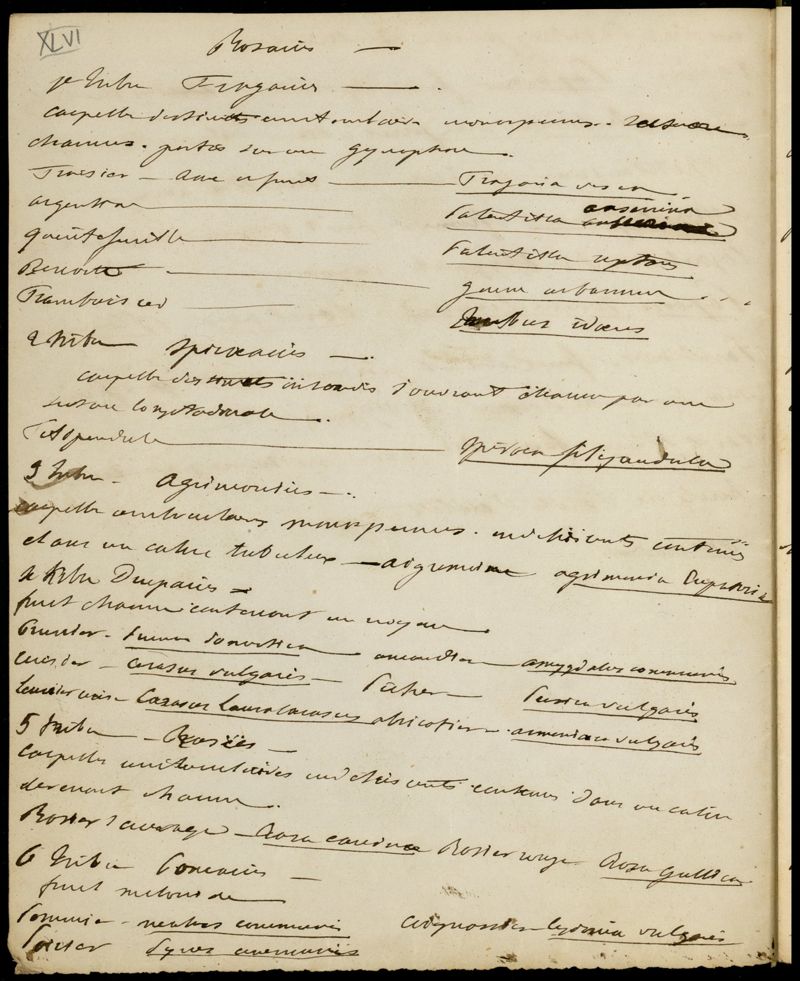 XLVI
Rosacées —
1e tribu Fragariées — .
carpelles distincts uniloculaires monospermes.
chacun. portés sur un gynophore.
Fraisier — Fragaria vesca
argentine — Potentilla anserina
quintefeuille — Potentilla reptans
Benoite — geum urbanum . . .
Framboisier — Rubus idaeus
2 tribu spiraeacées —
carpelles distincts s'ouvrant chacun par une
suture longitudinale .
Filipendule — spiraea filipendula
3 tribu — agrimoniées — .
carpelles uniloculaires monospermes. indéhiscents contenus
dans un calice tubuleux — aigremoine agrimonia Eupatoria
4e tribu Drupacées =
fruit charnu contenant un noyau
Prunier — Prunus domestica amandier — amygdalus communis
cerisier — cerasus vulgaris — Pêcher — Persica vulgaris
laurier cerise — Cerasus laurocerasus abricotier — armeniaca vulgaris
5 tribu — Rosées —
Carpelles uniloculaires indéhiscents contenus dans un calice
devenant charnu .
Rosier sauvage — Rosa canina Rosier rouge Rosa gallica
6 tribu Pomacées —
fruit melonide
Pommier — malus communis cognassier — Cydonia vulgaris
Poirier Pyrus communis